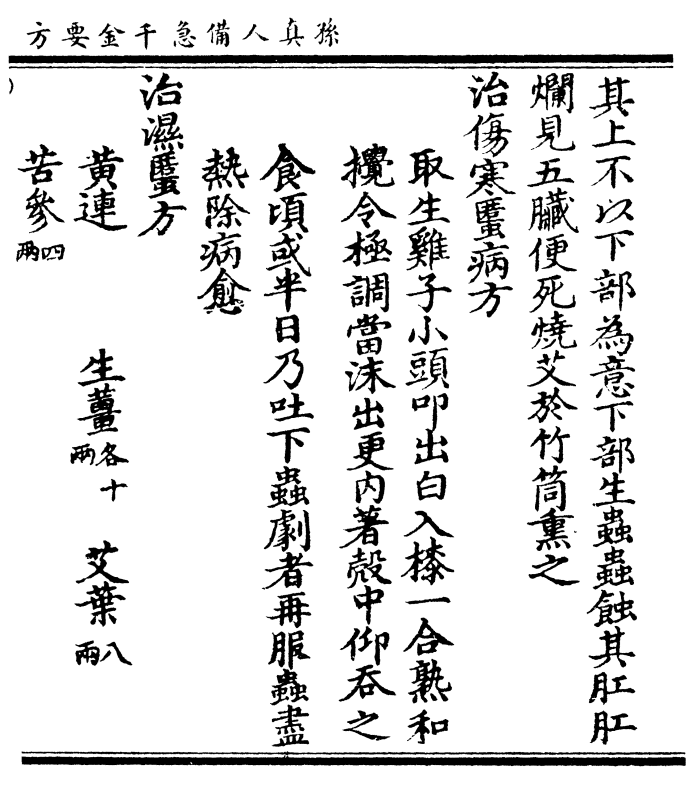 孫真人備急千金要方
其上不以下部為意下部生蟲蟲蝕其肛肛
爛見五臟便死燒艾於竹筒熏之
治傷寒䘌病方
取生雞子小頭叩出白入漆一合熟和
攪令極調當沫出更內著殼中仰吞之
食頃或半日乃吐下蟲劇者再服蟲盡
熱除病愈
治濕䘌方
黃連 生薑各十兩 艾葉八兩
苦參四兩